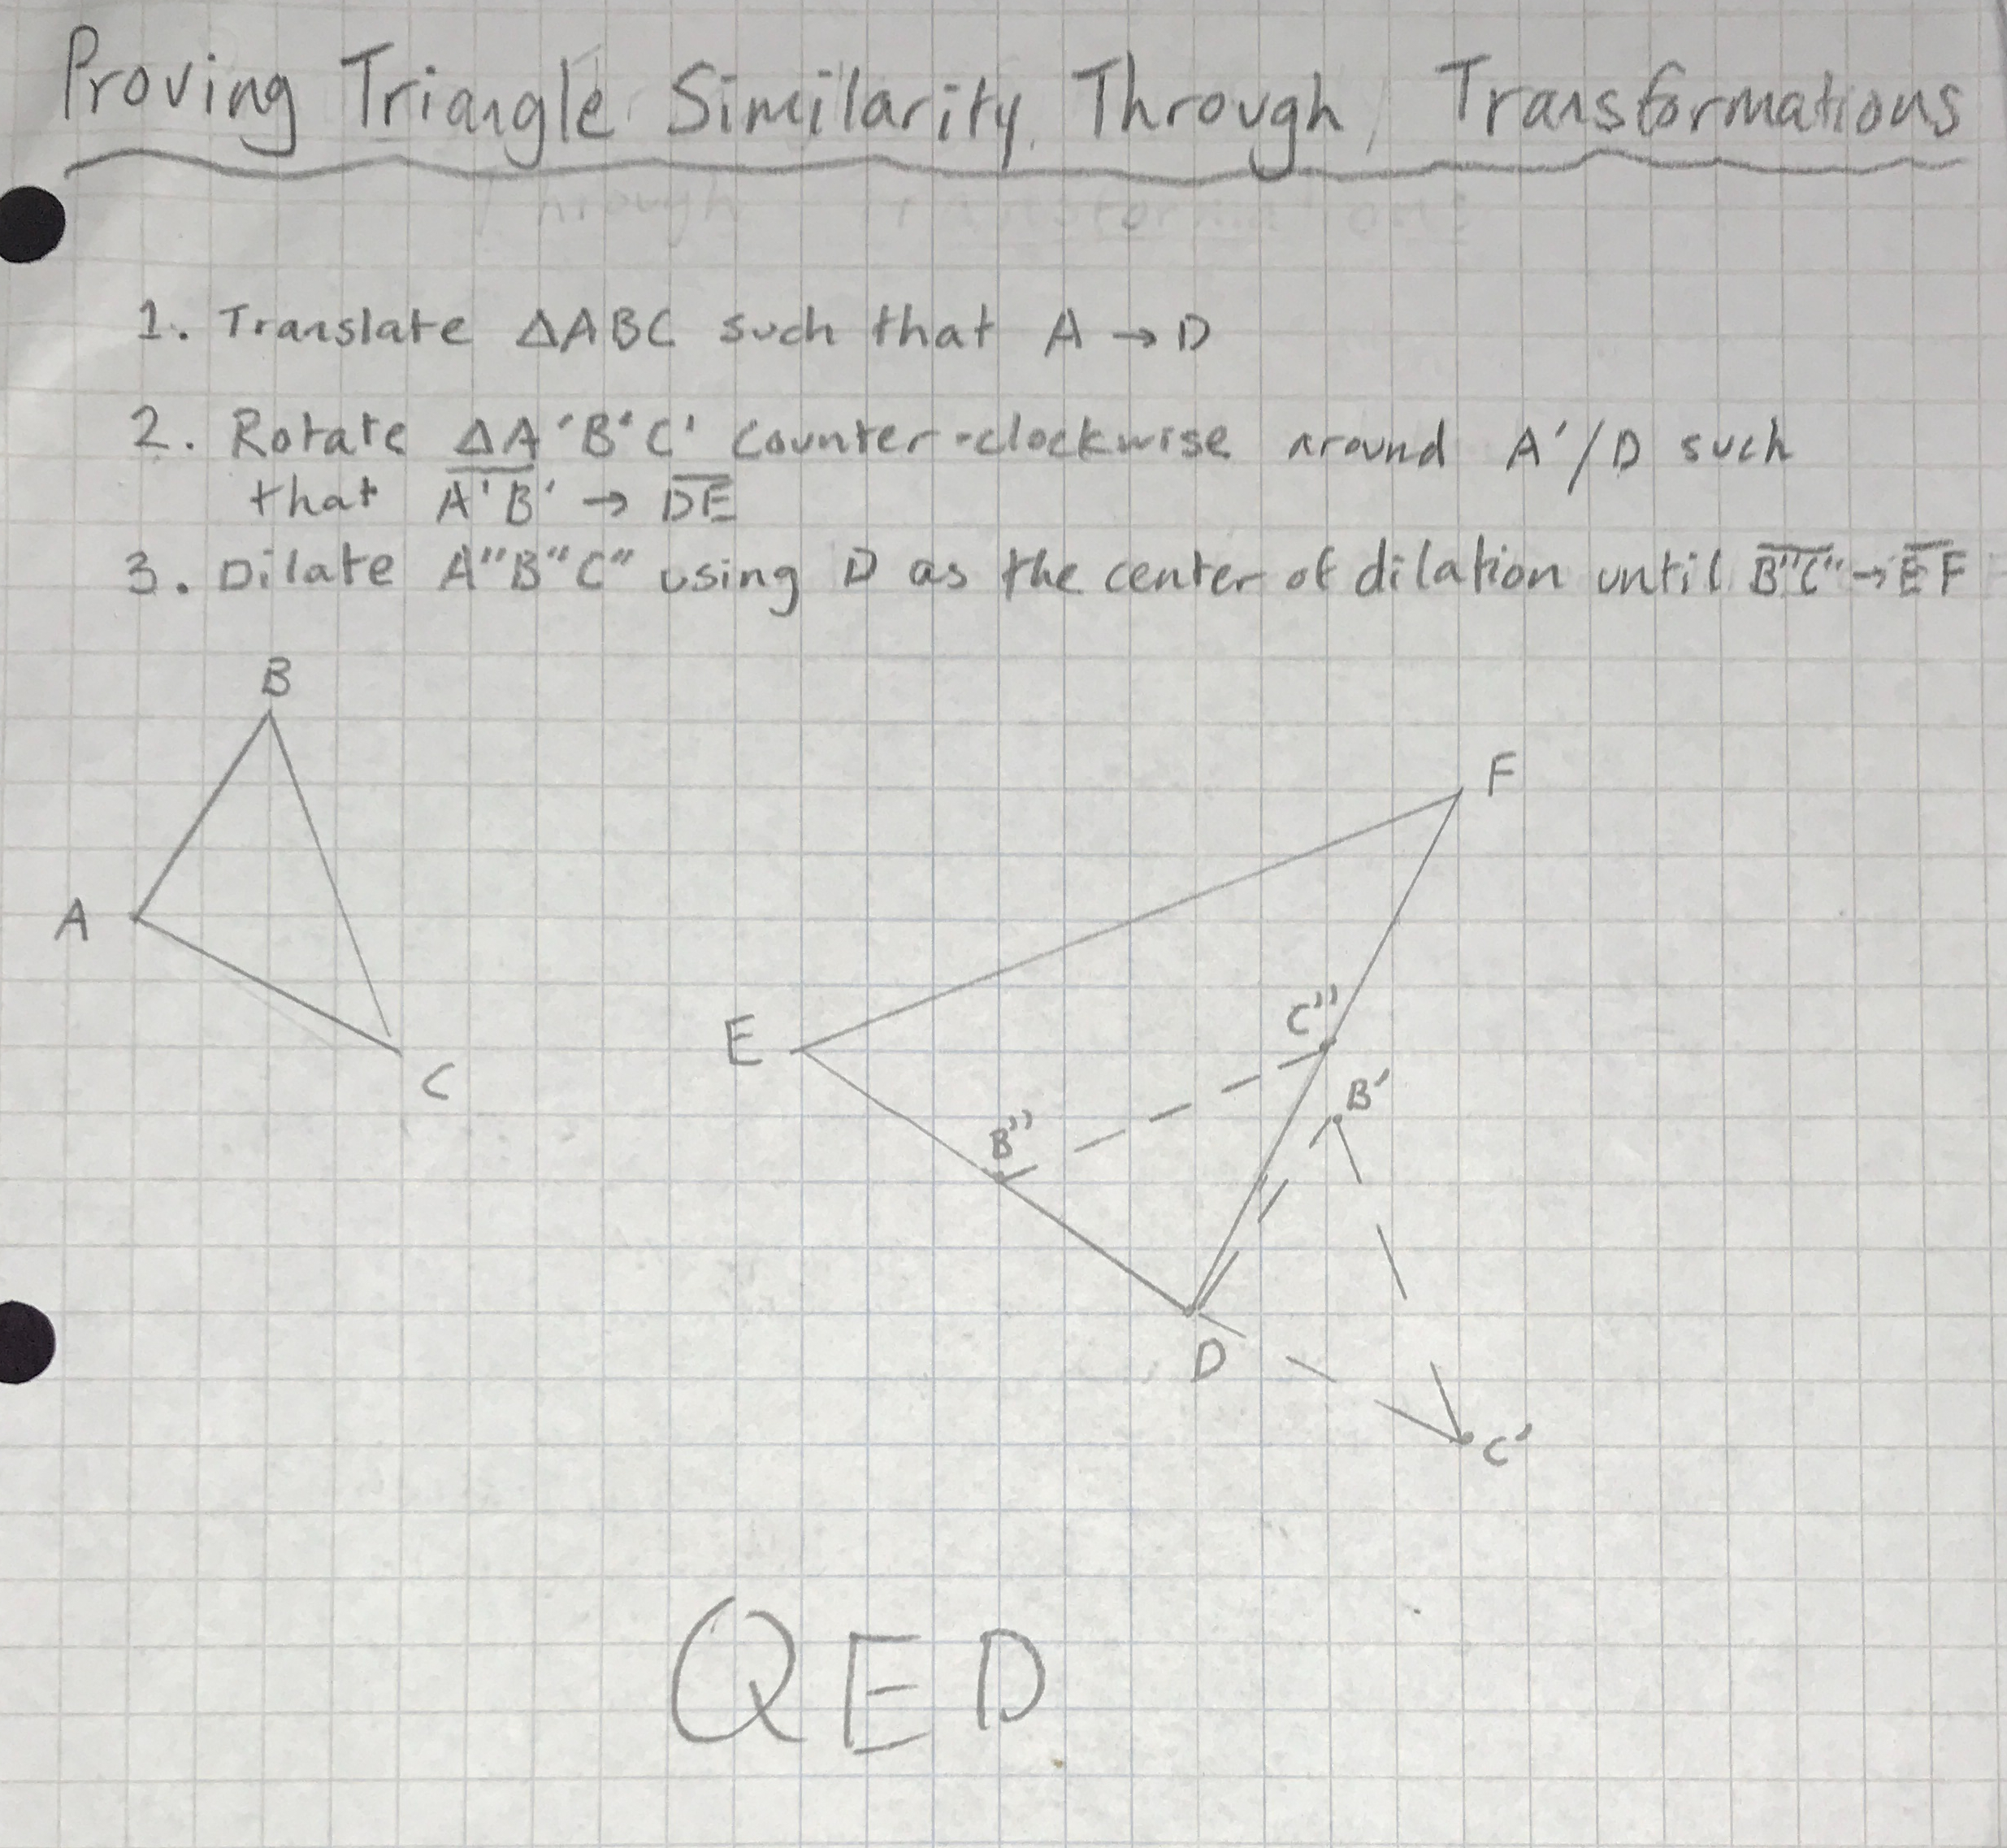 Proving Triangle Similarity Through Transformations
Through Transformations
1. Translate ΔABC such that A → D
2. Rotate ΔA'B'C' counter-clockwise around A'/D such
that A'B' → DE
3. Dilate A"B"C" using D as the center of dilation until B"C" → EF
B
F
A
C"
E
C
B'
B"
D
C'
QED